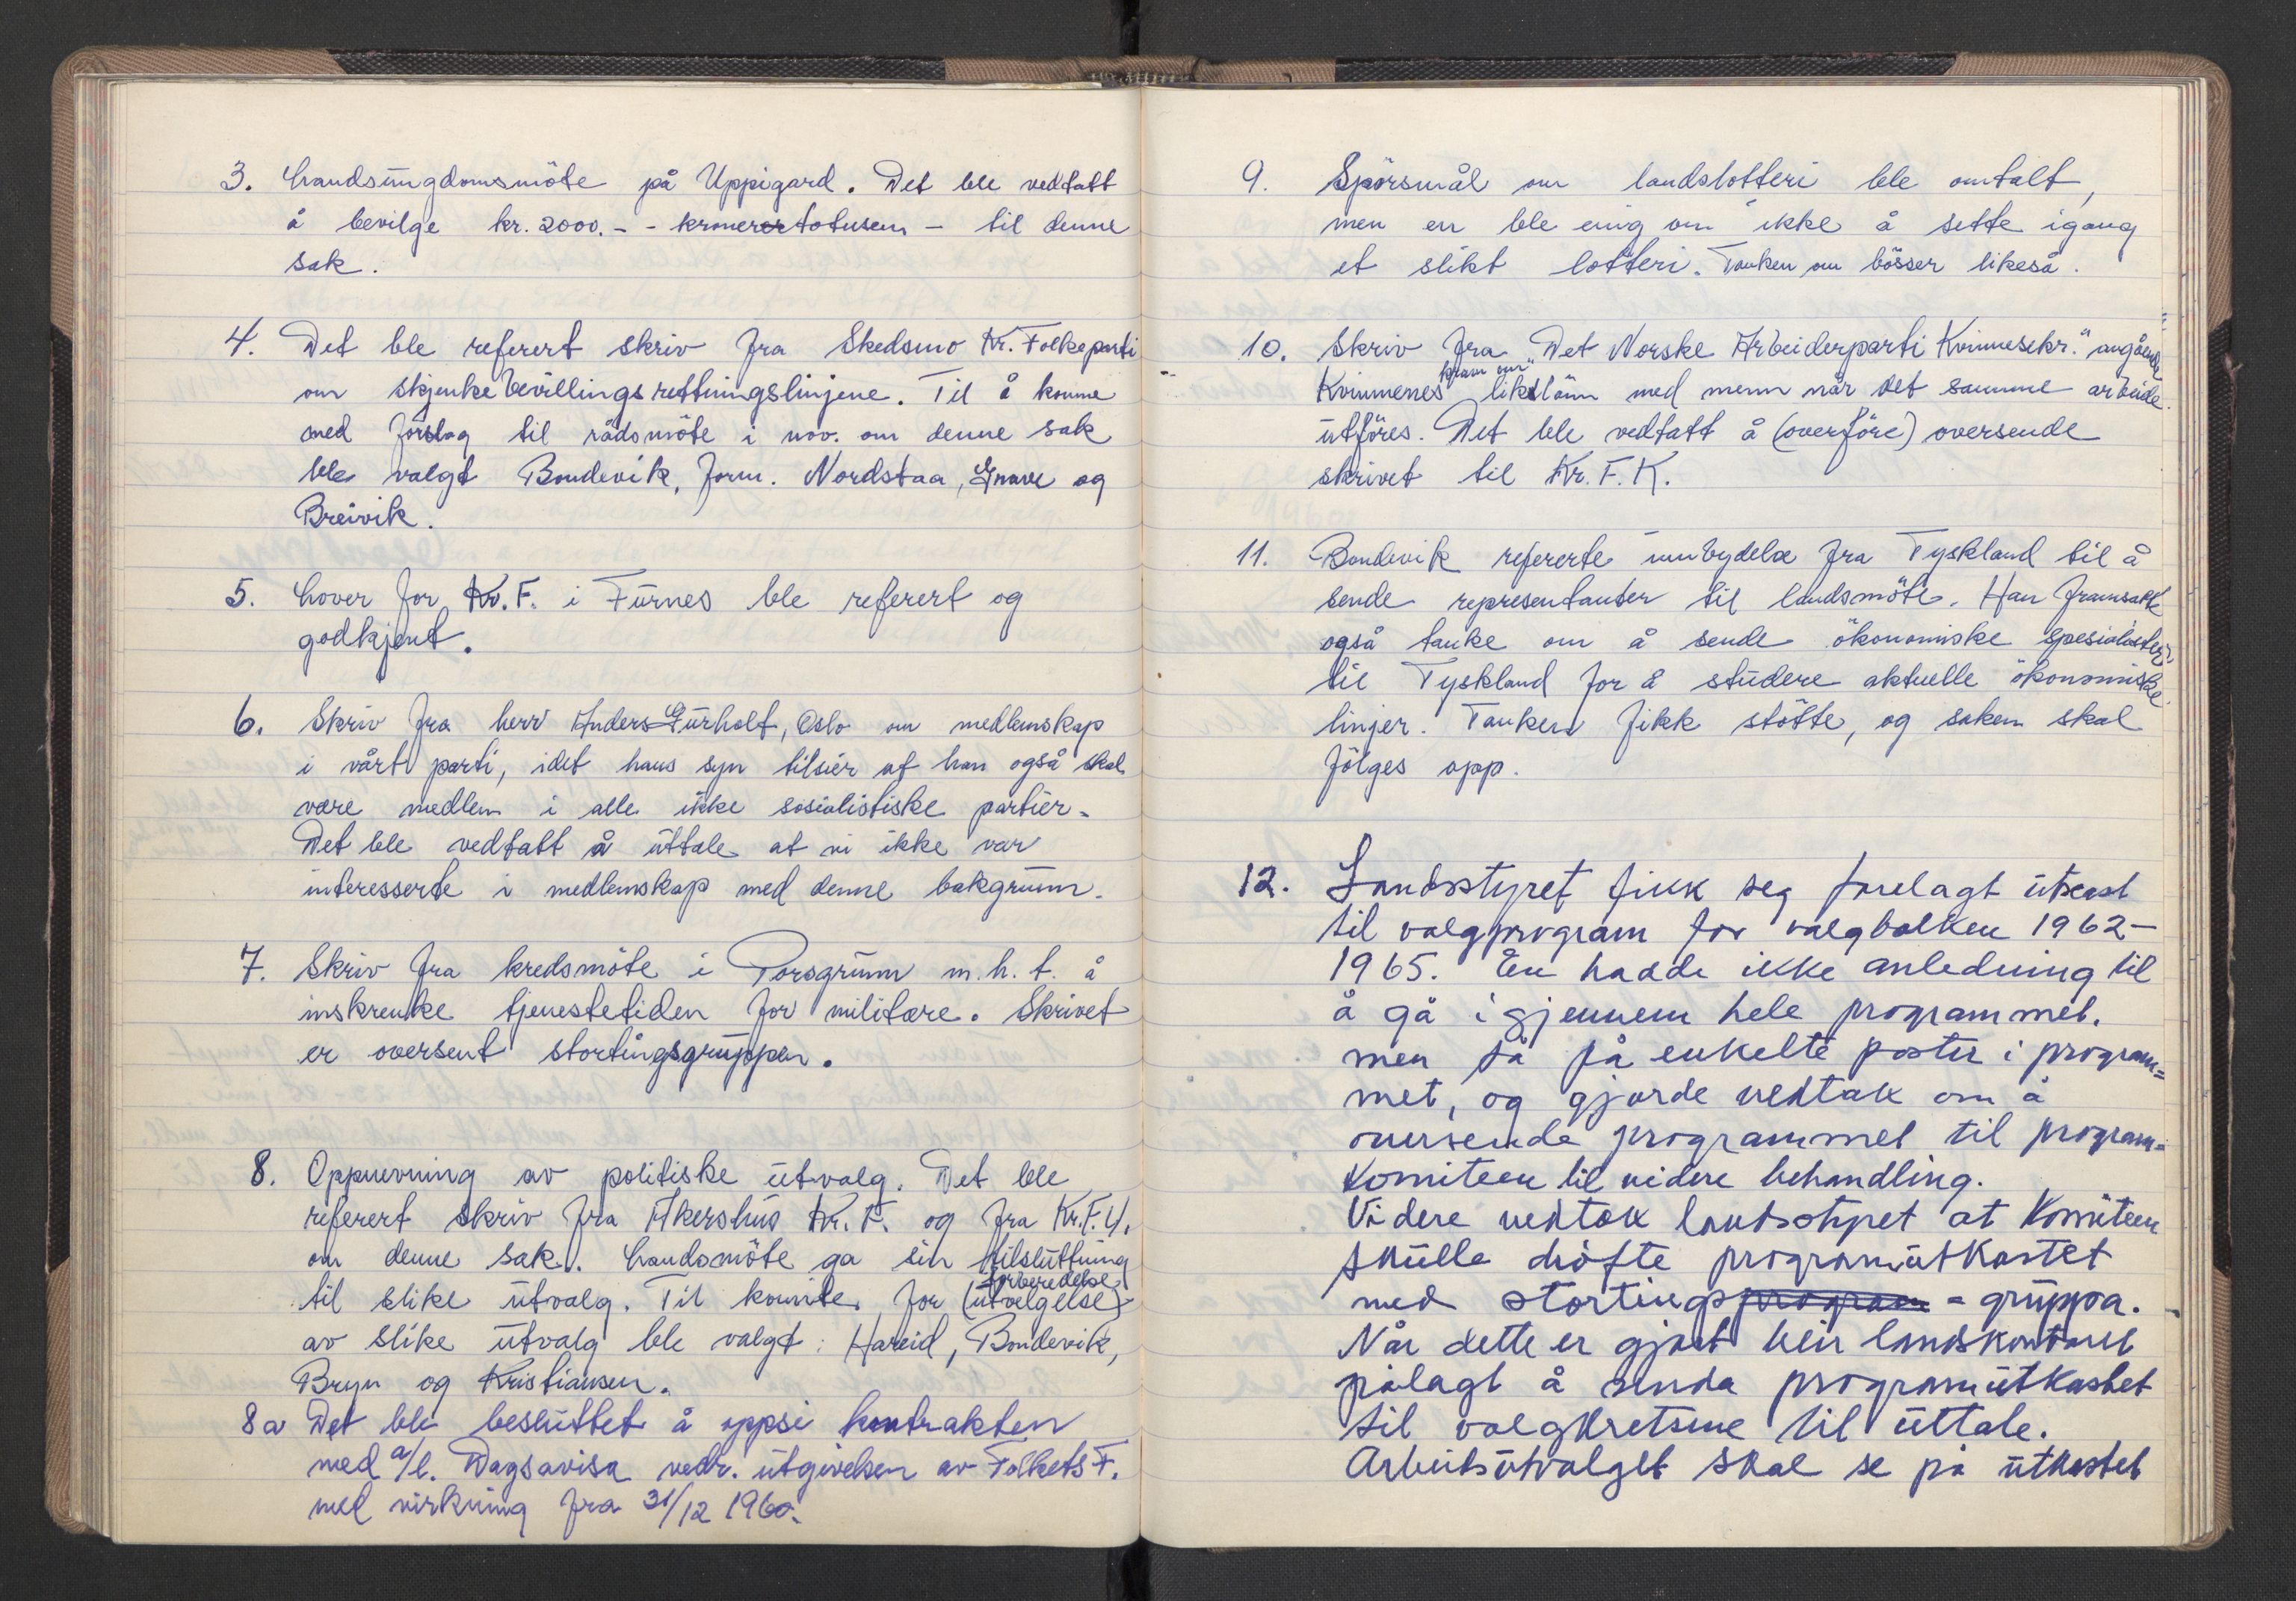 3. Landsungdomsmöte på Uppigard. Det ble vedtatt
å bevilge kr. 2000.- - kronerertotusen - til denne
sak.
4. Det ble referert skriv fra Skedsmo Kr. Folkeparti
om skjenkebevillingsrettningslinjene. Til å komme
med förslag til rådsmöte i nov. om denne sak
ble valgt Bondevik, form. Nordstaa, Gnave og
Breivik.
5. Lover for Kr. F. i Furnes ble referert og
godkjent.
6. Skriv fra herr Anders Gürholt, Oslo om medlemskap
i vårt parti, idet hans syn tilsier at han også skal
være medlem i alle ikke sosialistiske partier.
Det ble vedtatt å uttale at vi ikke var
interesserte i medlemskap med denne bakgrunn.
7. Skriv fra kredsmöte i Porsgrunn m.h.t. å
inskrenke tjenestetiden for militære. Skrivet
er oversent stortingsgruppen.
8. Oppnevning av politiske utvalg. Det ble
referert skriv fra Akershus Kr. F. og fra Kr.F.U.
om denne sak. Landsmöte ga sin tilsluttning
forberedelse
til slike utvalg. Til komite for (utvelgelse)
av slike utvalg ble valgt: Hareid, Bondevik,
Bryn og Kristiansen.
8a Det ble besluttet å oppsi kontrakten
med a/l. Dagsavisa vedr. utgivelsen av Folkets F.
med virkning fra 31/12 1960.
9. Spörsmål om landslotteri ble omtalt,
men en ble enig om ikke å sette igang
et slikt lotteri. Tanken om bösser likeså.
10. Skriv fra "Det Norske Arbeiderparti Kvinnesekr." angående
krav om
Kvinnenes likelönn med menn når det samme arbeide
utföres. Det ble vedtatt å (overföre) oversende
skrivet til Kr. F. K.
11. Bondevik refererte innbydelse fra Tyskland til å
sende representanter til landsmöte. Han framsatt
også tanke om å sende ökonomiske spesialister
til Tyskland for å studere aktuelle ökonomiske
linjer. Tanken fikk stötte, og saken skal
fölges opp.
12. Landsstyret fikk seg forelagt utkast
til valgprogram for valgbolken 1962-
1965. En hadde ikke anledning til
å gå igjennem hele programmet.
men så på enkelte poster i program=
met, og gjorde vedtak om å
oversende programmet til program=
komiteen til videre behandling.
Videre vedtok landsstyret at Komiteen
skulle dröfte programutkastet
med stortingsprogram = gruppa.
Når dette er gjort blir landskontoret
pålagt å senda programutkastet
til valgkretsene til uttale.
Arbeidsutvalget skal se på utkastet